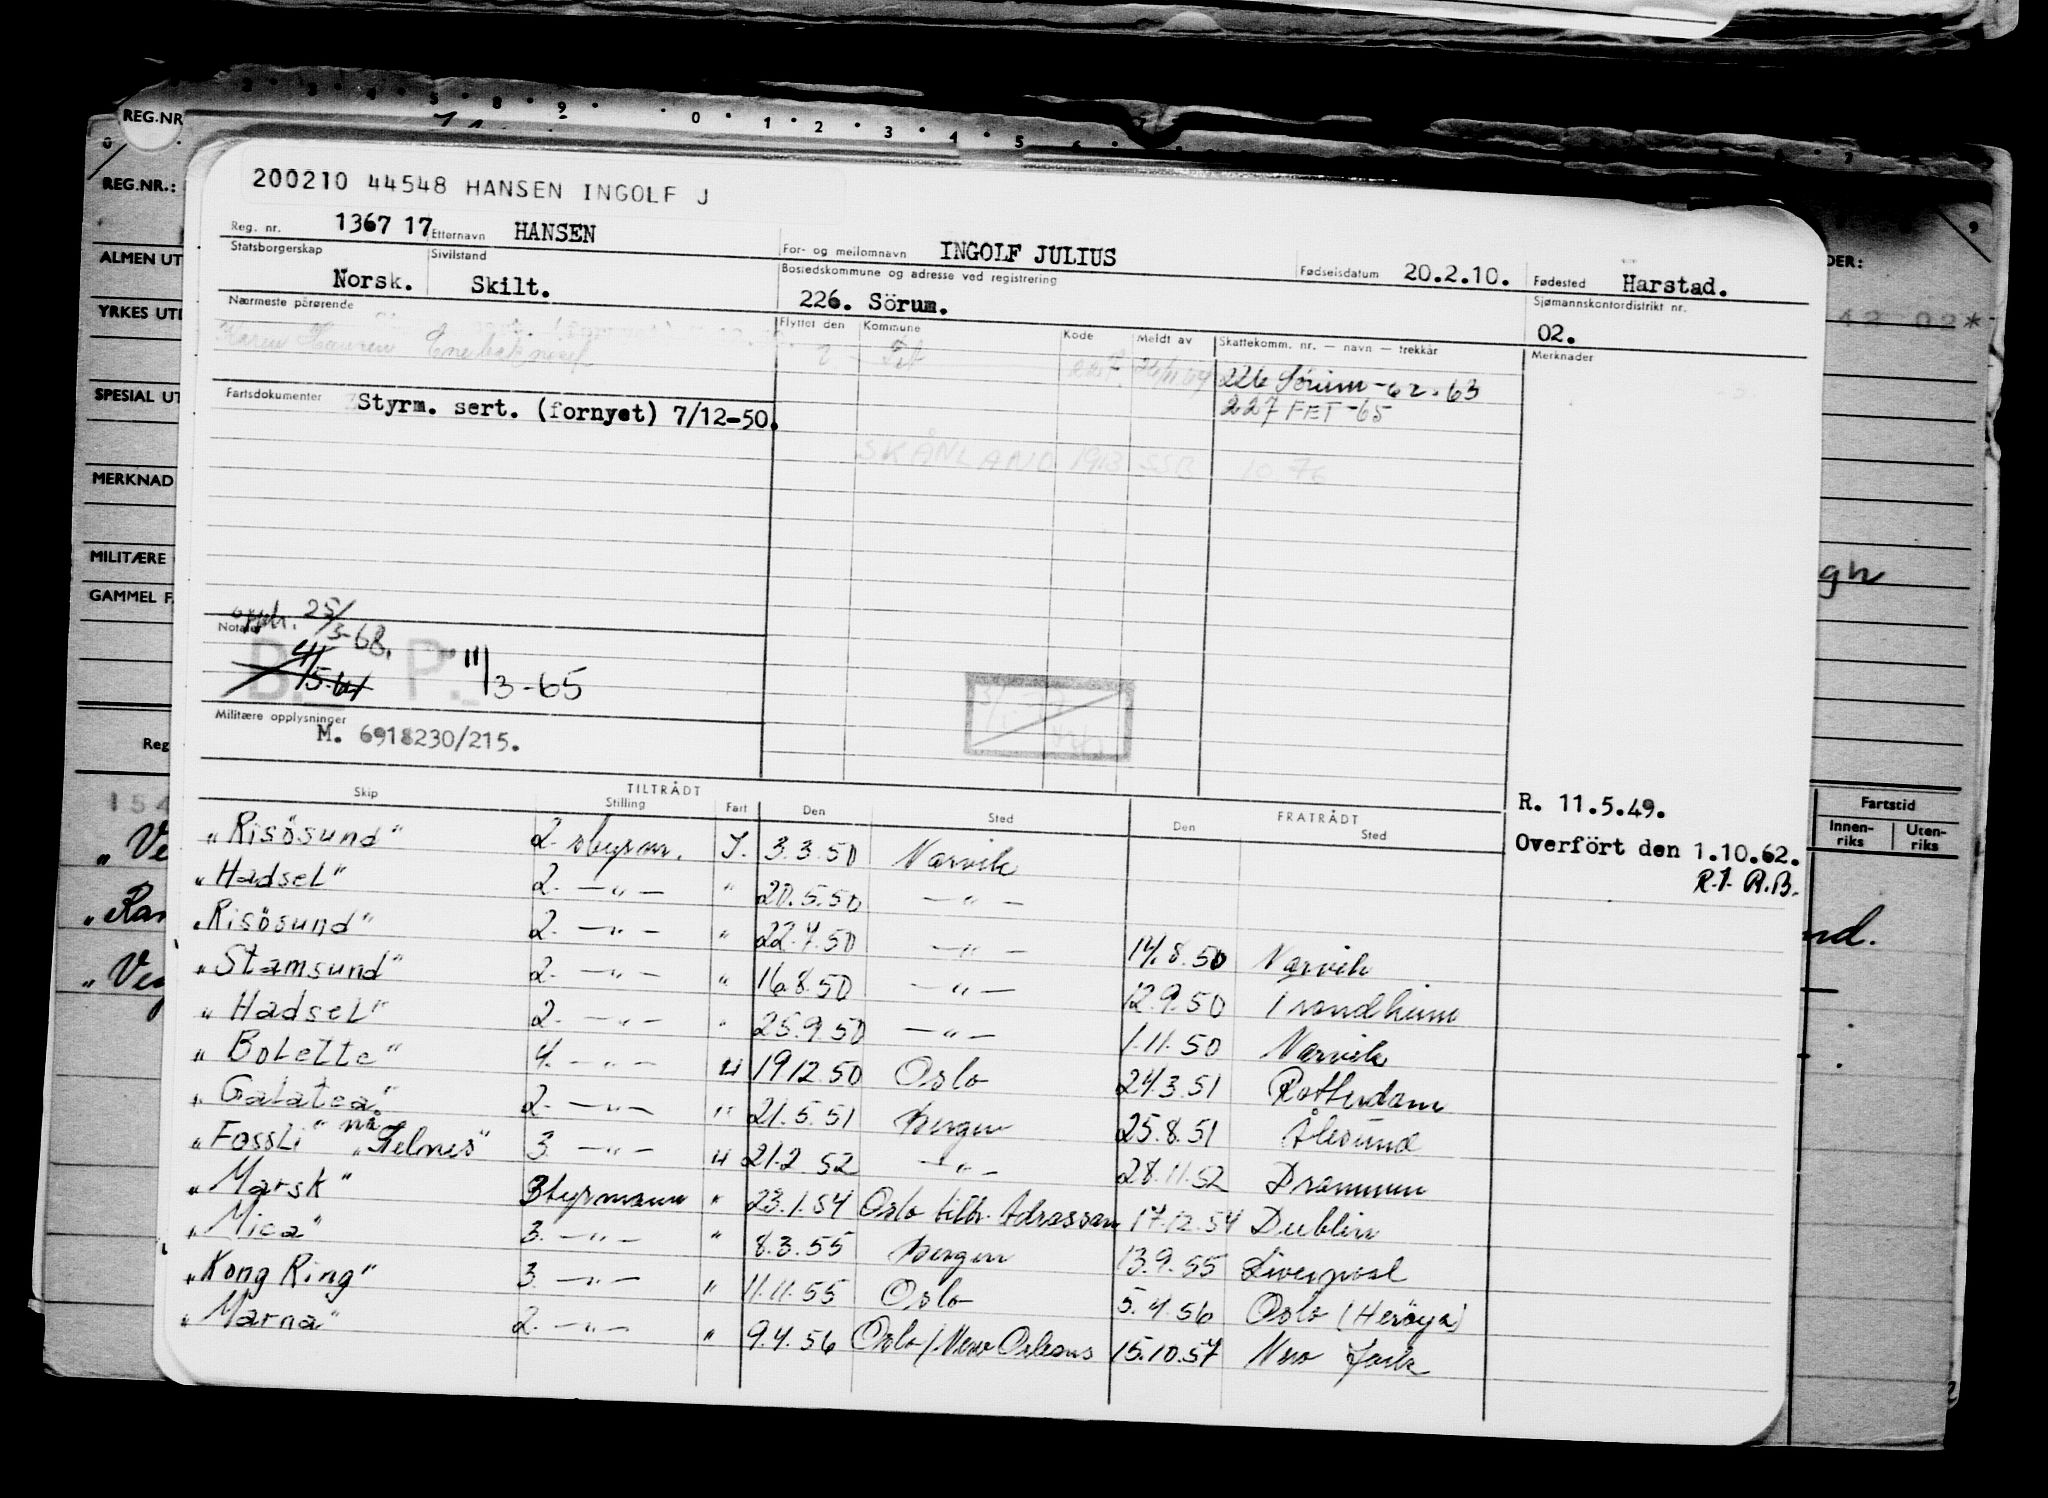 REG.NR
REG.NR.:
ALMEN UT
YRKES UTD
SPESIAL UT
MERKNAD
MILITÆRE
GAMMEL F
Reg
200210 44548 HANSEN INGOLF J
Reg. nr. 1367 17 Etternavn HANSEN For- og mellomnavn INGOLF JULIUS Fødselsdatum 20.2.10. Fødested Harstad.
Statsborgerskap Norsk. Sivilstand Skilt. Bostedskommune og adresse ved registrering 226. Sörum. Sjømannskontordistrikt nr. 02.
Nærmeste pårørende Flyttet den Kommune Kode Meldt av Skattekomm. nr. — navn — trekkår Merknader
Karen Hansen
226 Sörum-62.63
227 FET-65
Fartsdokumenter Styrm. sert. (fornyet) 7/12-50.
SKÅNLAND 1913 SSB 10 76
Notater 25/3-68.
4/5-61 B. P. 11/3-65
Militære opplysninger
M. 6918230/215.
R. 11.5.49.
Overført den 1.10.62.
R.I. A.B.
Skip TILTRÅDT Stilling Fart Den Sted FRATRÅDT Den Sted
"Risösund" 2. styrm. I. 3.3.50 Narvik
"Hadsel" 2. —"— " 20.5.50 —"—
"Risösund" 2. —"— " 22.7.50 —"— 14.8.50 Narvik
"Stamsund" 2. —"— " 16.8.50 —"— 12.9.50 Trondheim
"Hadsel" 2. —"— " 25.9.50 —"— 1.11.50 Narvik
"Bolette" 4. —"— U 19.12.50 Oslo 24.3.51 Rotterdam
"Galatea" 2. —"— " 21.5.51 Bergen 25.8.51 Ålesund
"Fossli" nå "Telnes" 3. —"— U 21.2.52 —"— 28.11.52 Drammen
"Marsk" Styrmann " 23.1.54 Oslo tiltr. Adrossan 17.12.54 Dublin
"Mica" 3. —"— " 8.3.55 Bergen 13.9.55 Liverpool
"Kong Ring" 3. —"— " 11.11.55 Oslo 5.4.56 Oslo (Herøya)
"Marna" 2. —"— " 9.4.56 Oslo/New Orleans 15.10.57 New York
Fartstid
Innen-riks Uten-riks